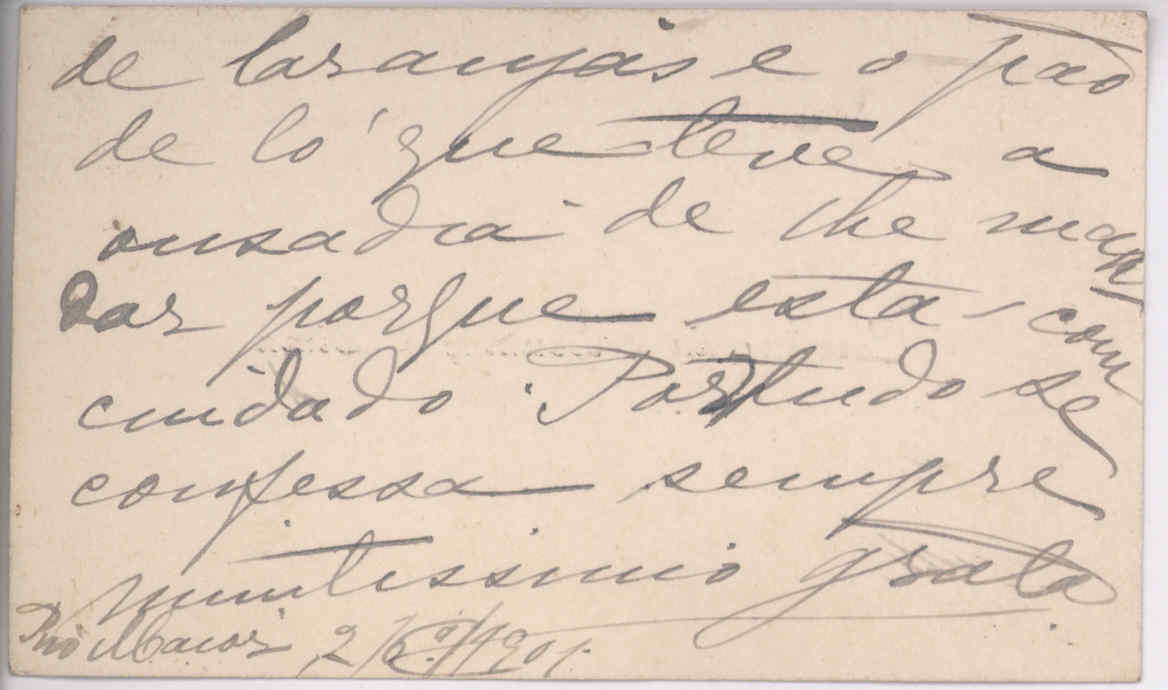 de laranjas e o pão
de ló que teve a
ousadia de lhe man
dar porque está com
cuidado. Por tudo se
confessa sempre
muitissimo grata
Rio Maior, 2/6/1901.